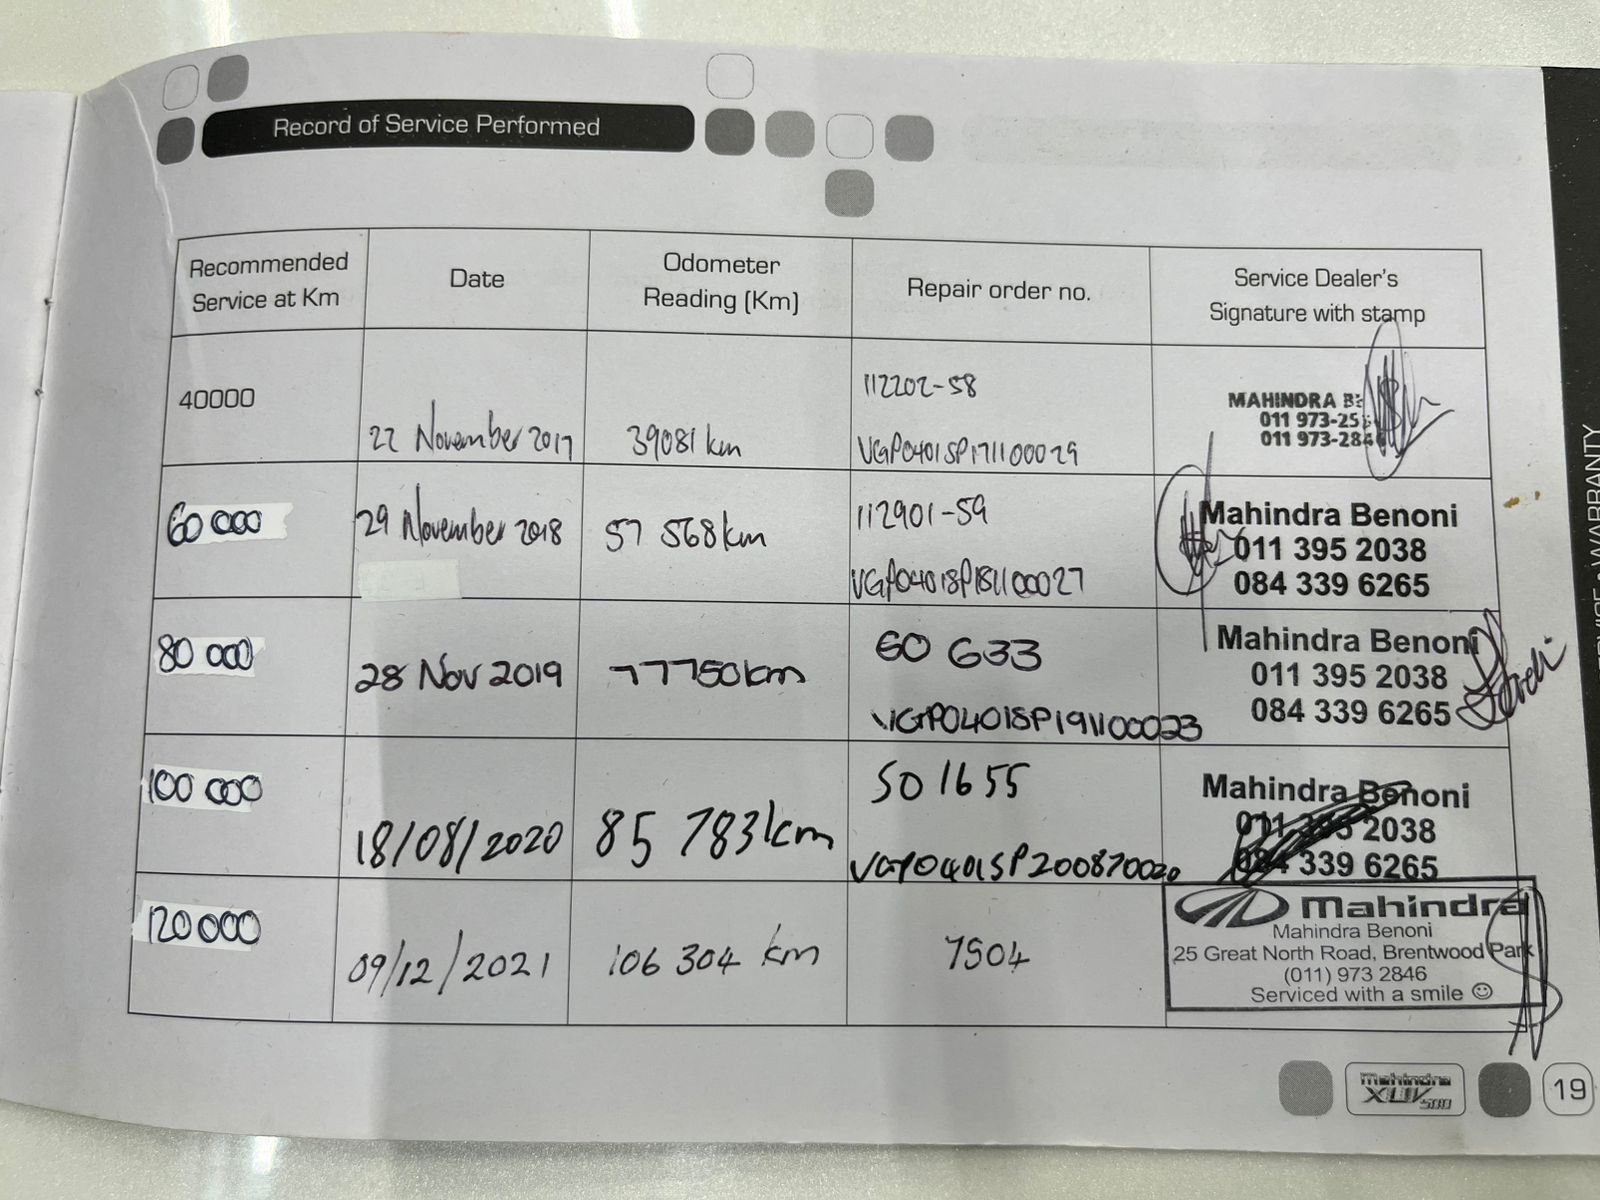 Record of Service Performed
Recommended Service at Km
Date
Odometer Reading (Km)
Repair order no.
Service Dealer's Signature with stamp
40000
22 November 2017
39081 km
112202-58
VGP0401SP171100029
MAHINDRA
011 973-25
011 973-2846
60 000
29 November 2018
57 568km
112901-59
VGP0401SP181100027
Mahindra Benoni
011 395 2038
084 339 6265
80 000
28 Nov 2019
77750km
60 633
VGP0401SP191100023
Mahindra Benoni
011 395 2038
084 339 6265
100 000
18/08/2020
85 783km
SO 1655
VGP0401SP200870020
Mahindra Benoni
011 395 2038
084 339 6265
120 000
09/12/2021
106 304 km
7504
Mahindra
Mahindra Benoni
25 Great North Road, Brentwood Park,
(011) 973 2846
Serviced with a smile ☺
Mahindra
XUV 500
19
WARRANTY